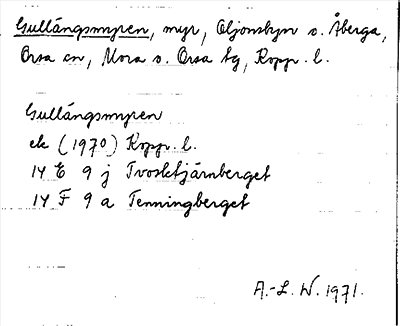 Gullängsmyren, myr, Oljonsbyn o. Åberga,
Orsa sn, Mora o. Orsa tg, Kopp. l.
Gullängsmyren
ek (1970) Kopp. l.
14 E 9 j Tvosletjärnberget
14 F 9 a Tenningberget
A.-L. W. 1971.